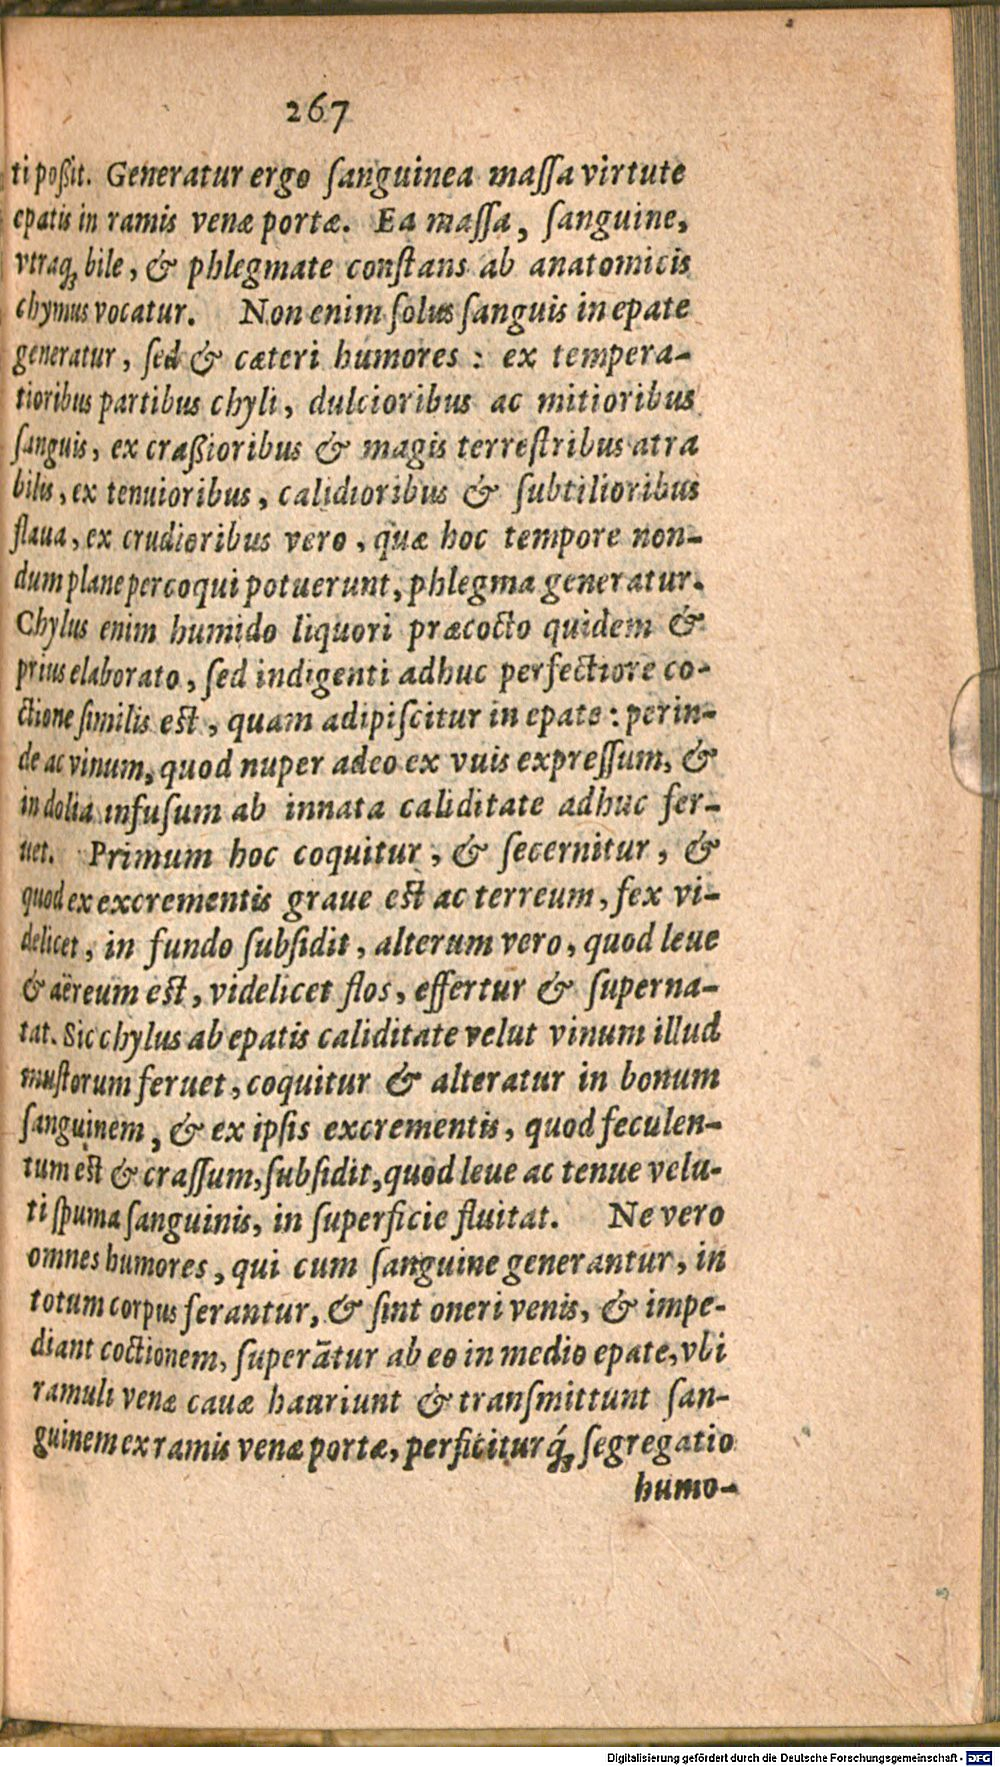 267
ti poßit. Generatur ergo ſanguinea maſſa virtute
epatis in ramis venæ portæ. Ea maſſa, ſanguine,
vtraq; bile, & phlegmate conſtans ab anatomicis
chymus vocatur. Non enim ſolus ſanguis in epate
generatur, ſed & cæteri humores : ex tempera-
tioribus partibus chyli, dulcioribus ac mitioribus
ſanguis, ex craßioribus & magis terreſtribus atra
bilis, ex tenuioribus, calidioribus & ſubtilioribus
flaua, ex crudioribus vero, quæ hoc tempore non-
dum plane percoqui potuerunt, phlegma generatur.
Chylus enim humido liquori præcocto quidem &
prius elaborato, ſed indigenti adhuc perfectiore co-
ctione ſimilis eſt, quam adipiſcitur in epate : perin-
de ac vinum, quod nuper adeo ex vuis expreſſum, &
in dolia infuſum ab innata caliditate adhuc fer-
uet. Primum hoc coquitur, & ſecernitur, &
quod ex excrementis graue eſt ac terreum, fex vi-
delicet, in fundo ſubſidit, alterum vero, quod leue
& aëreum eſt, videlicet flos, effertur & ſuperna-
tat. Sic chylus ab epatis caliditate velut vinum illud
muſtorum feruet, coquitur & alteratur in bonum
ſanguinem, & ex ipſis excrementis, quod feculen-
tum eſt & craſſum, ſubſidit, quod leue ac tenue velu-
ti ſpuma ſanguinis, in ſuperficie fluitat. Ne vero
omnes humores, qui cum ſanguine generantur, in
totum corpus ferantur, & ſint oneri venis, & impe-
diant coctionem, ſuperātur ab eo in medio epate, vbi
ramuli venæ cauæ hauriunt & tranſmittunt ſan-
guinem ex ramis venæ portæ, perficiturq́; ſegregatio
humo-
Digitalisierung gefördert durch die Deutsche Forschungsgemeinschaft - DFG